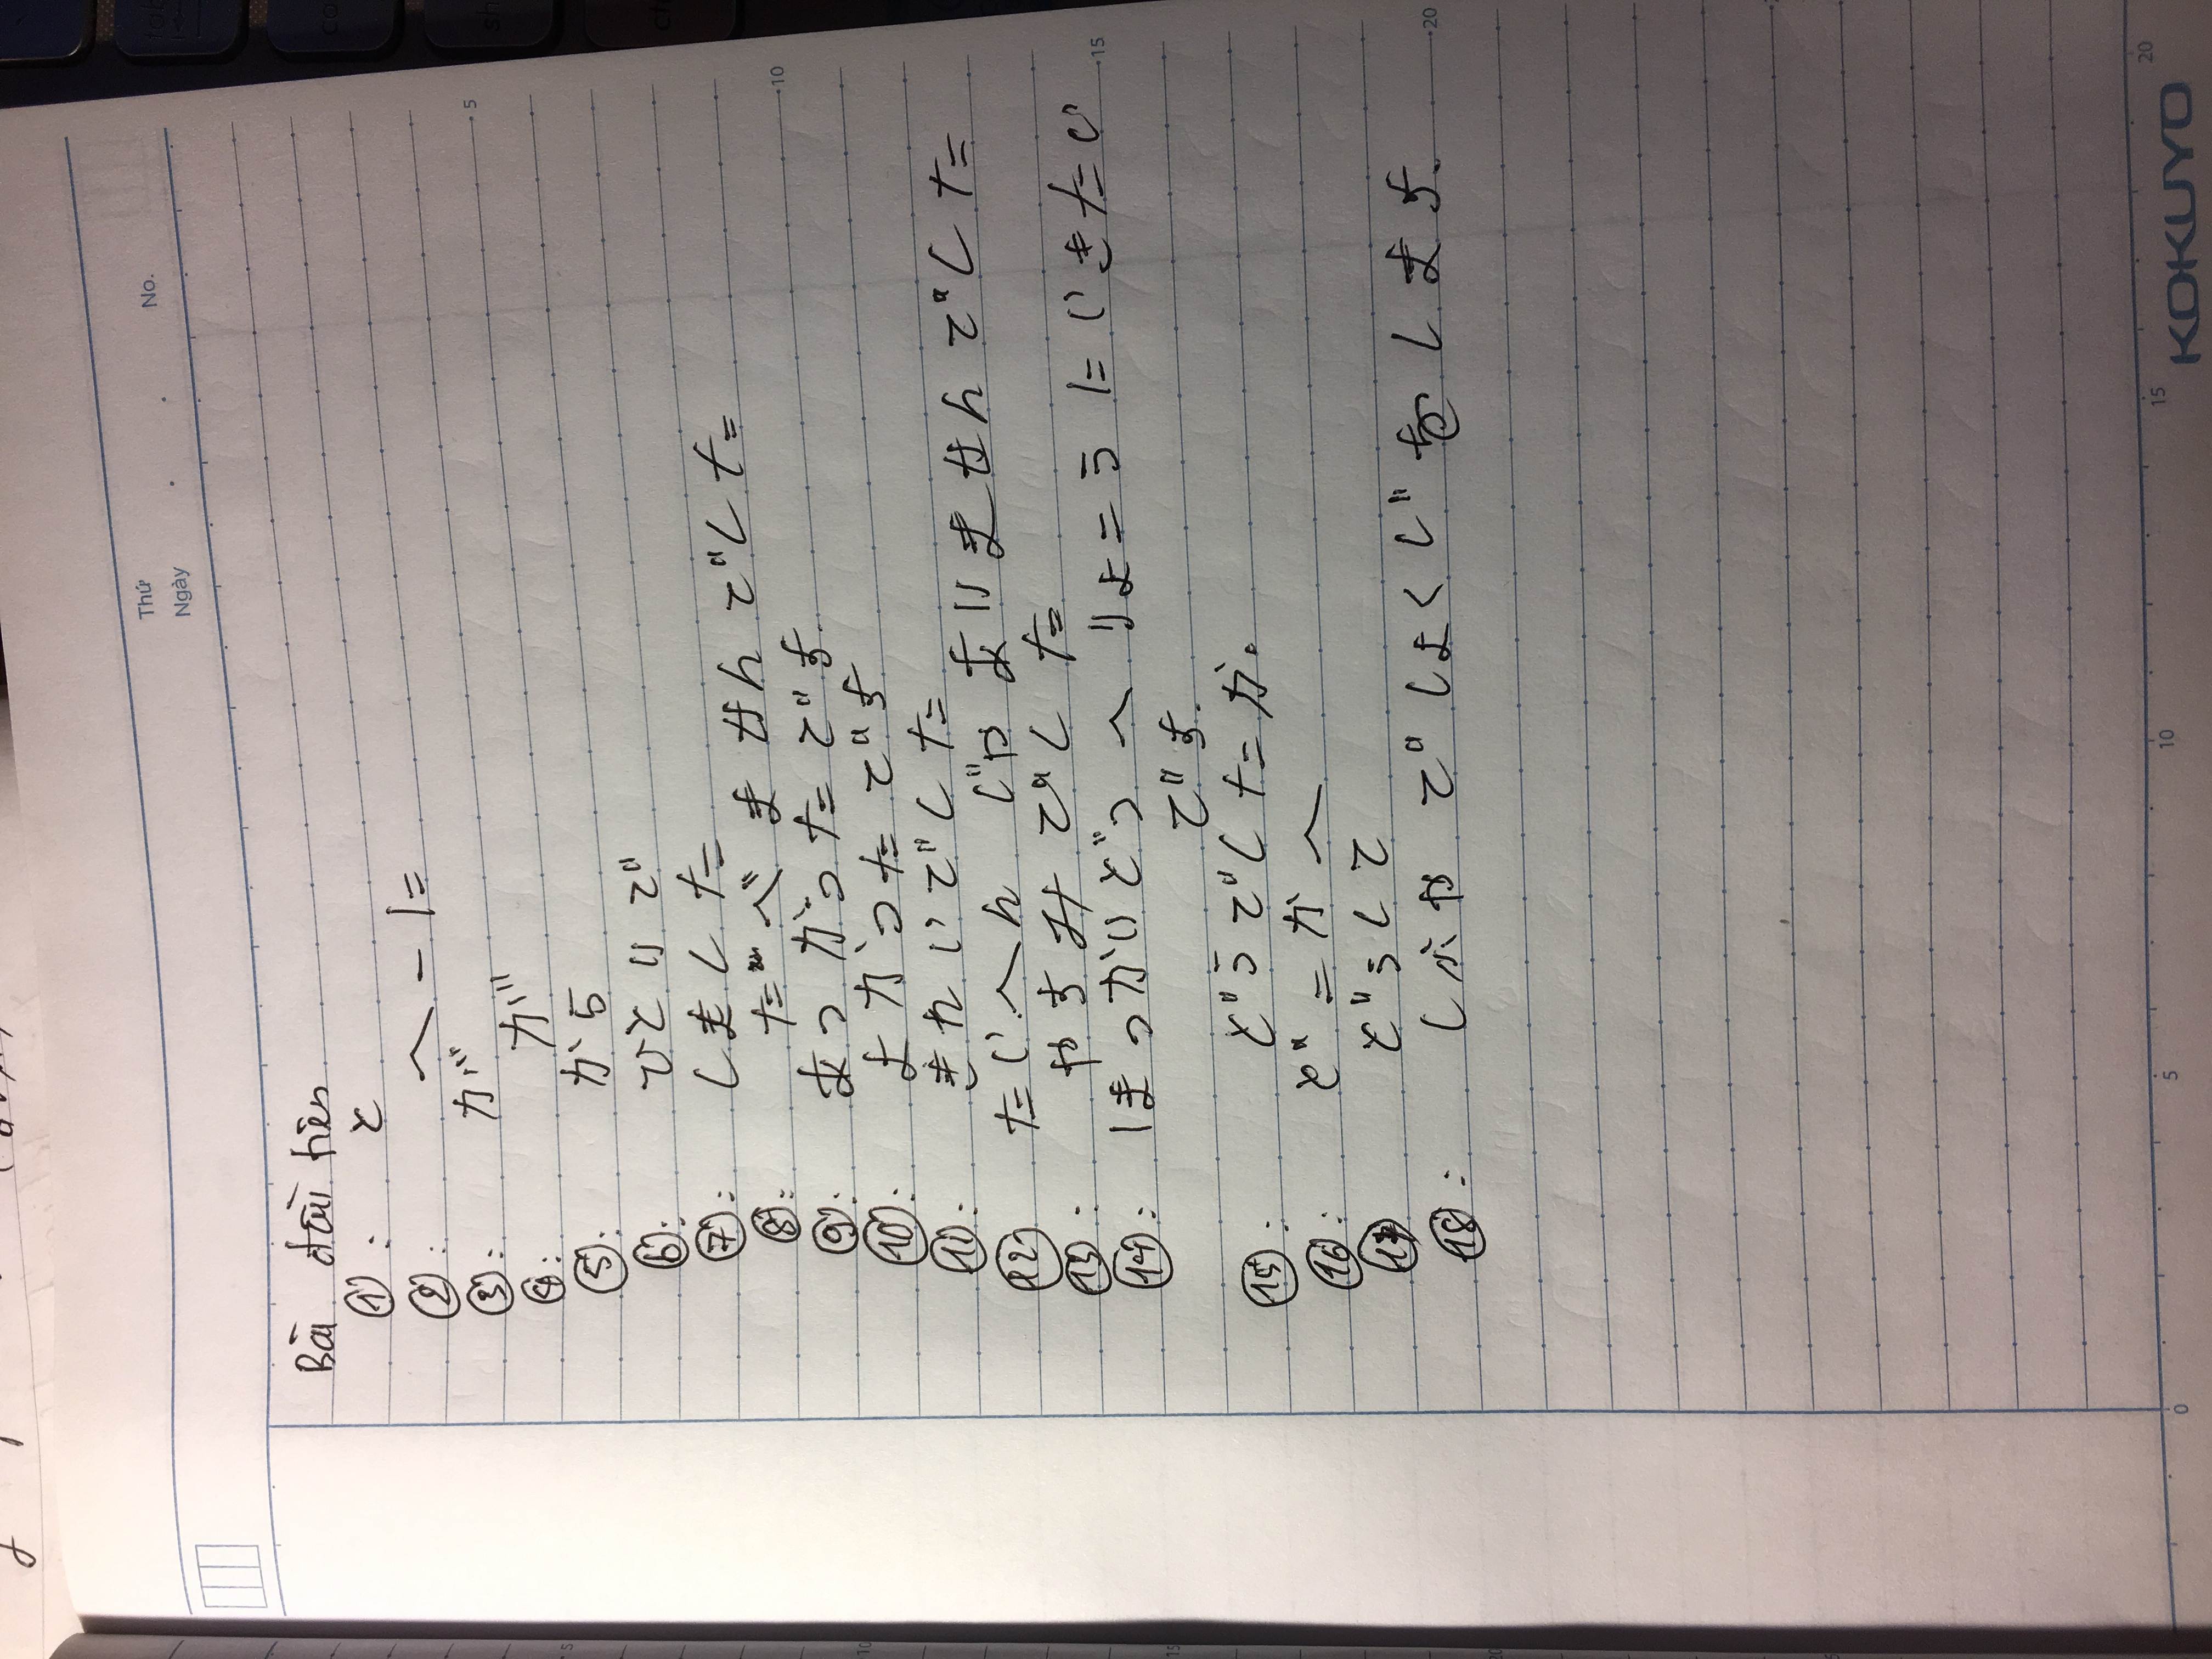 Thứ
Ngày
No.
Bài đầu tiên
①: と
②: へ - に
③: が
④: が
⑤: から
⑥: ひとりで
⑦: しました
⑧: たべませんでした
⑨: あつかったです.
⑩: よかったです
⑪: きれいでした
⑫ たいへんじゃありませんでした
⑬: やすみでした
⑭: ほっかいどうへりょこうにいきたい
です.
⑮: どうでしたか。
⑯: どこかへ
⑰ どうして
⑱: しぶやでしょくじをします.
5
10
15
20
0 5 10 15 20
KOKUYO